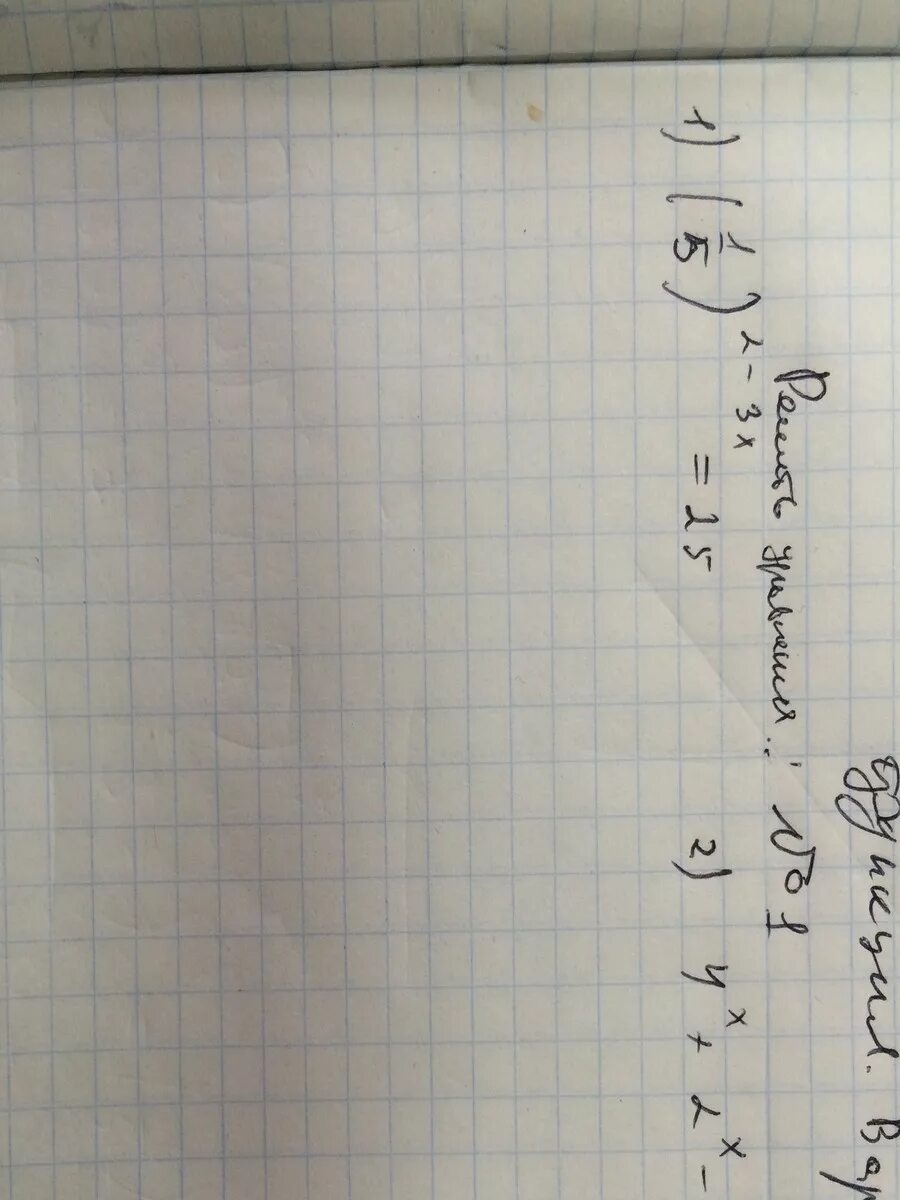 функция. Вар
Решить уравнения: №1
1) (1/5)^(2-3x) = 25 2) 4^x + 2^x -